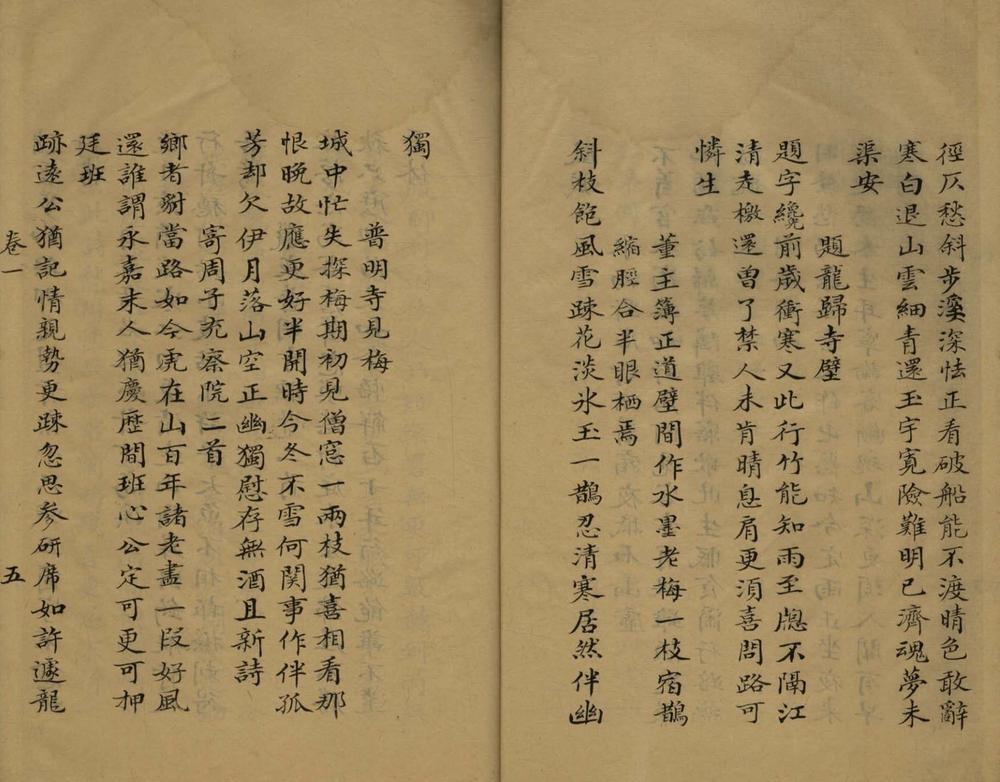 徑仄愁斜步溪深怯正看破船能不渡晴色敢辭
寒白退山雲細青還玉宇寬險難明已濟魂夢未
渠安
題龍歸寺壁
題字纔前歲衝寒又此行竹能知雨至牎不隔江
清走檄還曾了禁人未肯晴息肩更須喜問路可
憐生
董主簿正道壁間作水墨老梅一枝宿鵲
縮脛合半眼栖焉
斜枝飽風雪踈花淡氷玉一鵲忍清寒居然伴幽
獨
普明寺見梅
城中忙失探梅期初見僧窓一兩枝猶喜相看那
恨晚故應更好半開時今冬不雪何関事作伴孤
芳却欠伊月落山空正幽獨慰存無酒且新詩
寄周子充察院二首
鄉者豺當路如今虎在山百年諸老盡一段好風
還誰謂永嘉末人猶慶歴間班心公定可更可押
廷班
跡遠公猶記情親勢更踈忽思參研席如許遽龍
卷一
五